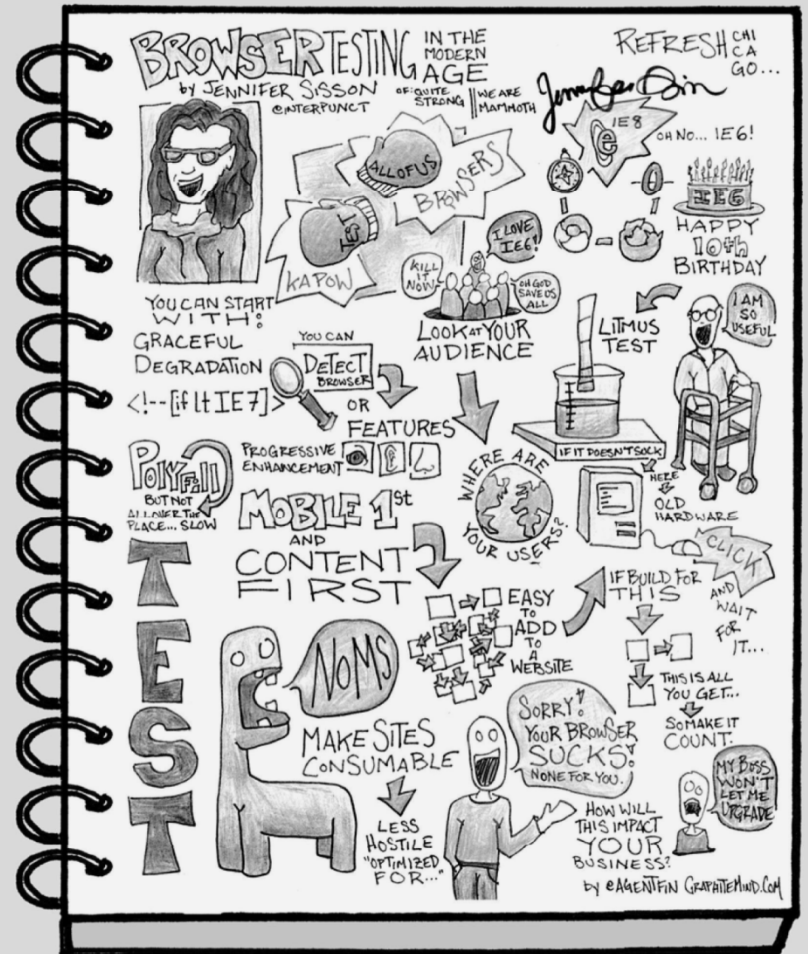 BROWSER TESTING IN THE
MODERN
AGE
by JENNIFER SISSON
@INTERPUNCT
OF: QUITE
STRONG
WE ARE
MAMMOTH
REFRESH CHI
CA
GO...
ALL OF US
BROWSERS
TEST
KAPOW
IE8
OH NO... IE6!
IE6
HAPPY
10th
BIRTHDAY
I LOVE
IE6!
KILL
IT
NOW
OH GOD
SAVE US
ALL
LOOK AT YOUR
AUDIENCE
LiTMUS
TEST
I AM
SO
USEFUL
YOU CAN START
WITH:
GRACEFUL
DEGRADATION
<!--[if lt IE 7]>
YOU CAN
DETECT
BROWSER
OR
FEATURES
PROGRESSIVE
ENHANCEMENT
POLYFill
BUT NOT
ALL OVER THE
PLACE... SLOW
MOBILE 1st
AND
CONTENT
FIRST
WHERE ARE
YOUR USERS?
IF IT DOESN'T SOCK
HERE
IS
OLD
HARDWARE
CLICK
AND
WAIT
FOR
IT...
TEST
NOMS
EASY
TO
ADD
TO
A
WEBSITE
IF BUILD FOR
THIS
THIS IS ALL
YOU GET...
SO MAKE IT
COUNT.
MAKE SITES
CONSUMABLE
LESS
HOSTILE
"OPTIMIZED
FOR..."
SORRY!
YOUR BROWSER
SUCKS!
NONE FOR YOU.
HOW WILL
THIS IMPACT
YOUR
BUSINESS?
MY BOSS
WON'T
LET ME
UPGRADE
by @AGENTFIN GRAPHITEMIND.COM